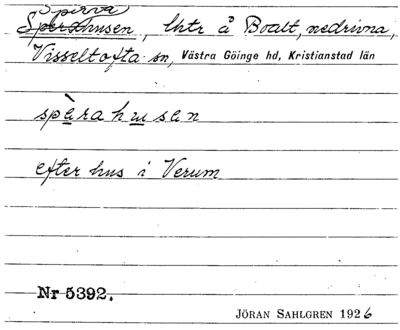 Spirva
Sperahusen, lhtr å Boalt, nedrivna,
Visseltofta sn, Västra Göinge hd, Kristianstad län
spèrahusen
efter hus i Verum
Nr 5392.
JÖRAN SAHLGREN 1926